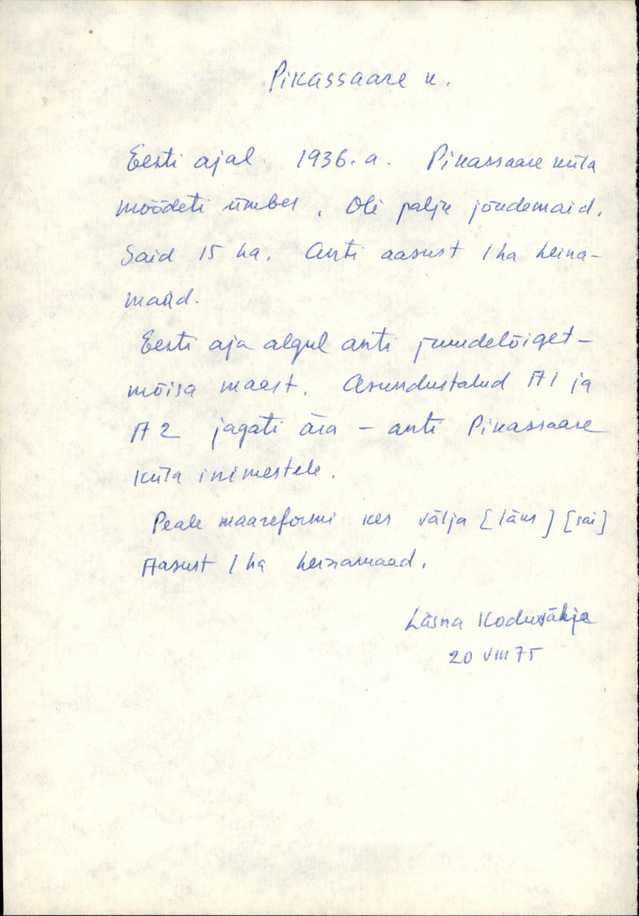 Pikassaare k.
Eesti ajal. 1936. a. Pikassaare küla
mõõdeti ümber. Oli palju jõudemaid.
Said 15 ha. Anti aasust 1 ha heina-
maad.
Eesti aja algul anti juurdelõiget -
mõisa maast. Asundustalud A1 ja
A2 jagati ära - anti Pikassaare
küla inimestele.
Peale maareformi kes välja [läks] [sai]
Aasust 1 ha heinamaad.
Läsna Kodu
20 VIII 75